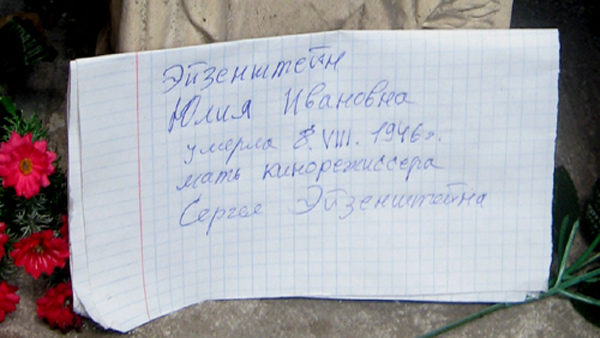 Эйзенштейн
Юлия Ивановна
умерла 8. VIII. 1946г.
мать кинорежиссера
Сергея Эйзенштейна